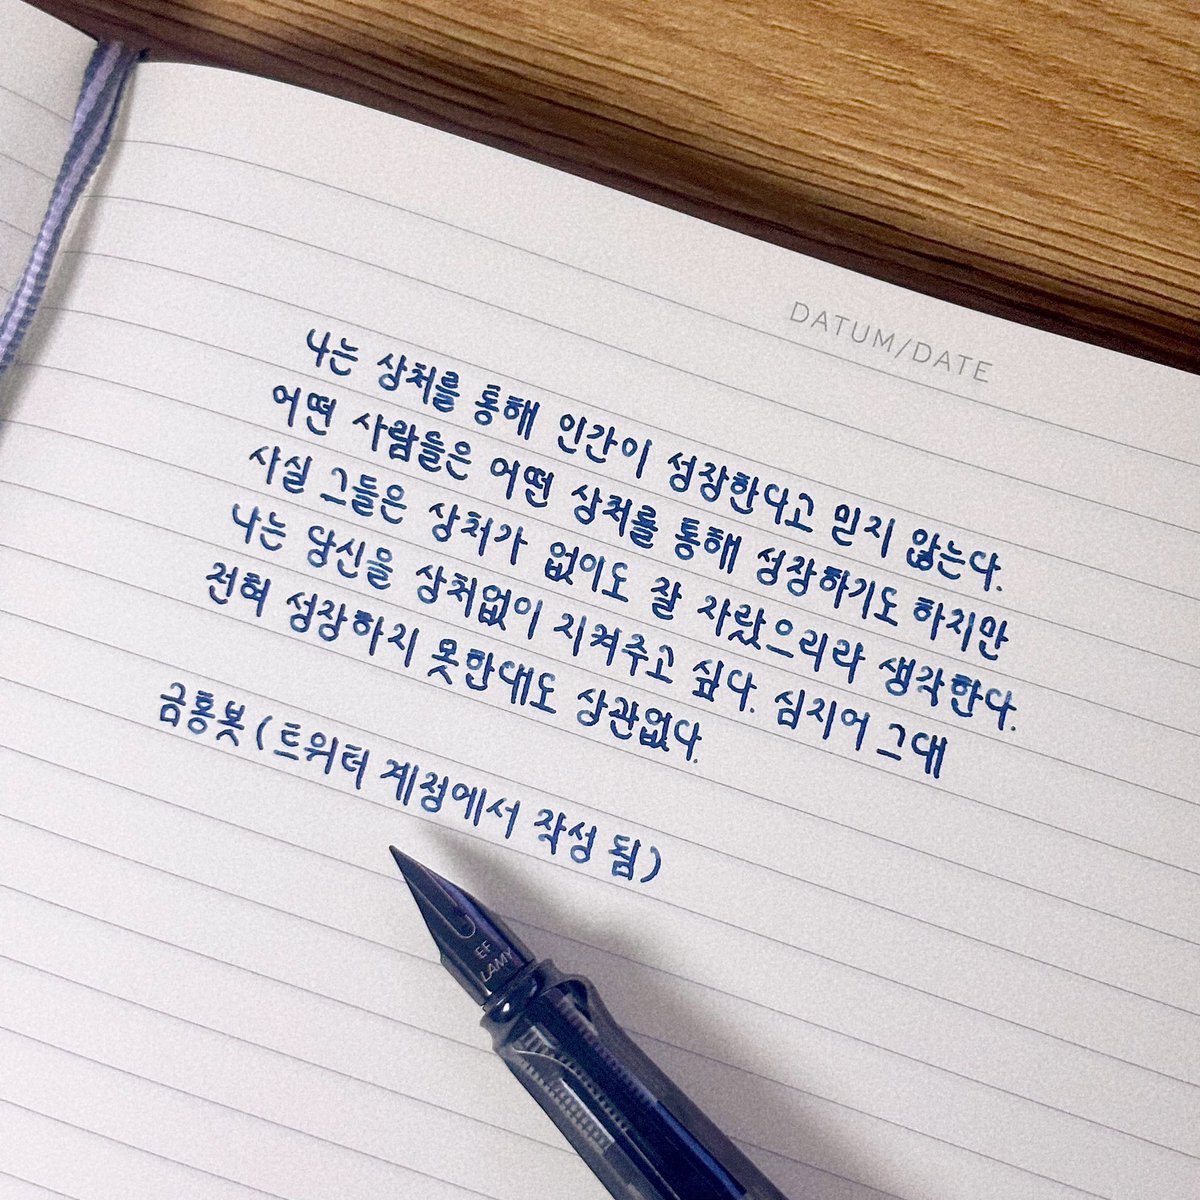 DATUM/DATE
나는 상처를 통해 인간이 성장한다고 믿지 않는다.
어떤 사람들은 어떤 상처를 통해 성장하기도 하지만
사실 그들은 상처가 없이도 잘 자랐으리라 생각한다.
나는 당신을 상처없이 지켜주고 싶다. 심지어 그대
전혀 성장하지 못한대도 상관없다.
금홍봇 (트위터 계정에서 작성 됨)
EF
LAMY